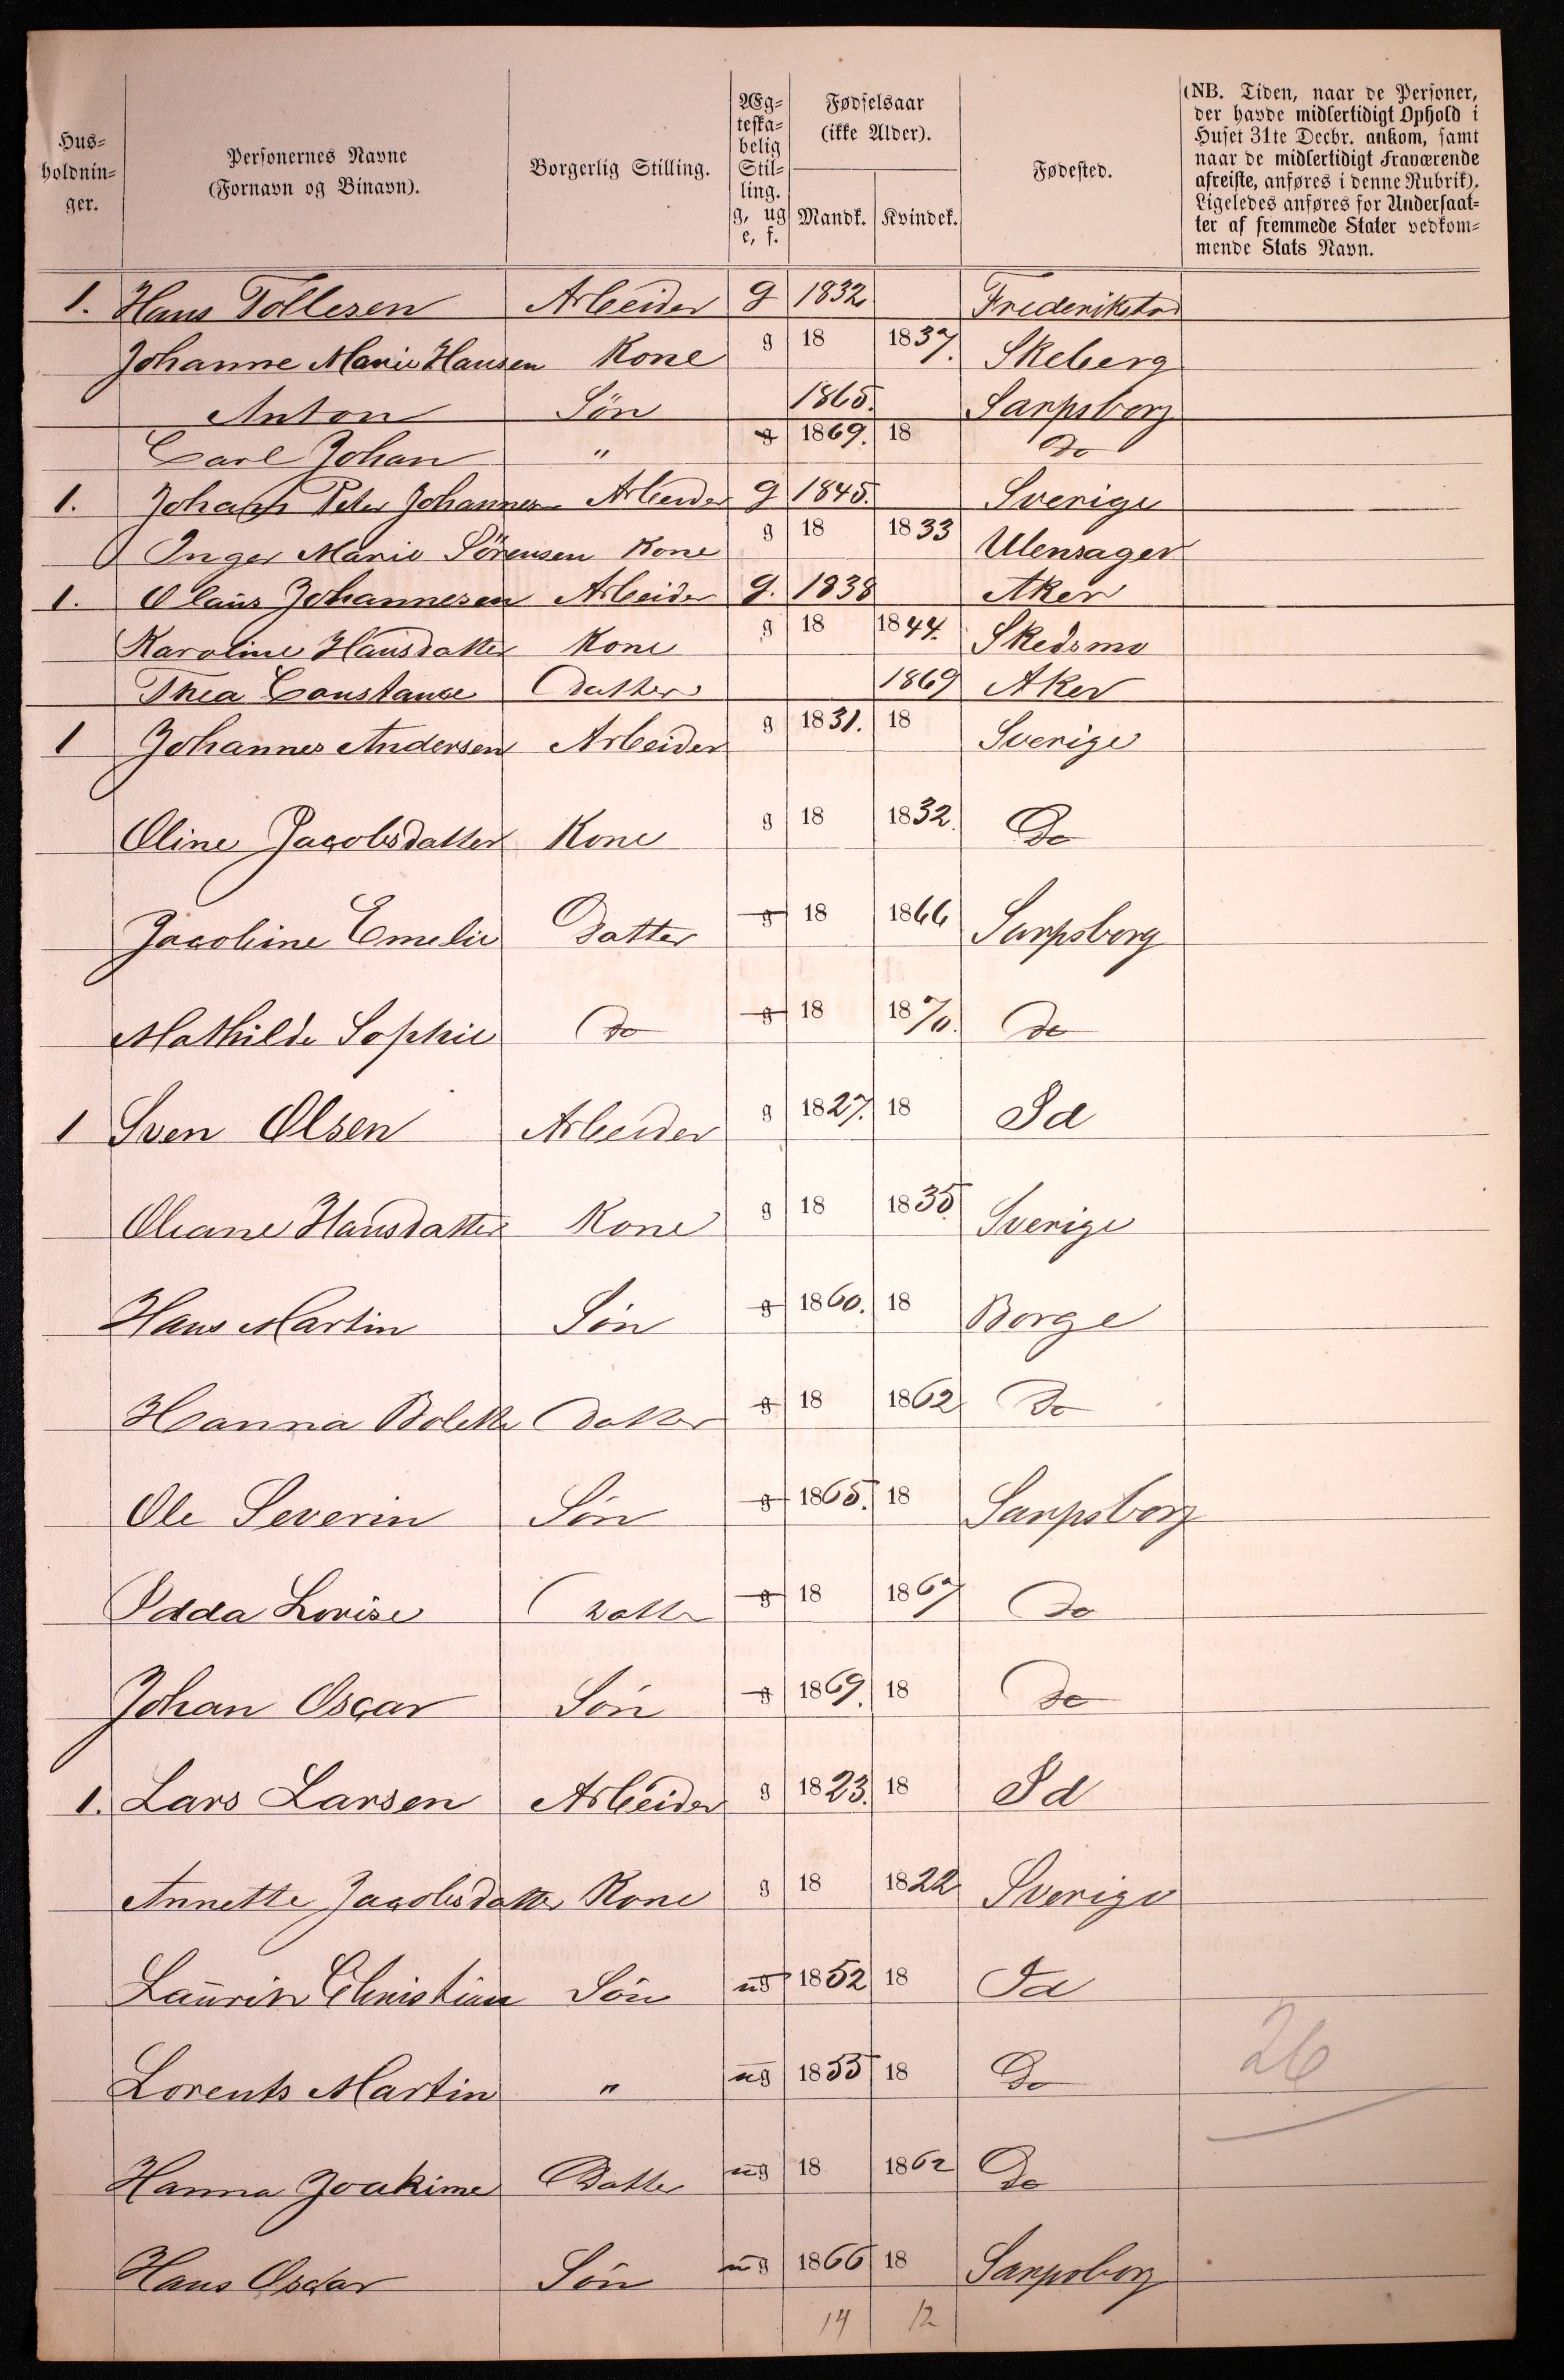 Hus-
holdnin-
ger.
Personernes Navne
(Fornavn og Binavn).
Borgerlig Stilling.
Æg-
teska-
belig
Stil-
ling.
g, ug
e, f.
Fødselsaar
(ikke Alder).
Mandk. Kvindek.
Fødested.
(NB. Tiden, naar de Personer,
der havde midlertidigt Ophold i
Huset 31te Decbr. ankom, samt
naar de midlertidigt Fraværende
afreiste, anføres i denne Rubrik).
Ligeledes anføres for Undersaat-
ter af fremmede Stater vedkom-
mende Stats Navn.
1. Hans Tollesen Arbeider g 1832 Frederikstad
Johanne Marie Hansen Kone g 18 1837. Skeberg
Anton Sön 1865. Sarpsborg
Carl Johan " g 1869. 18 Do
1. Johan Peter Johannesen Arbeider g 1845. Sverige
Inger Marie Sörensen Kone g 18 1833 Ulensager
1. Olaus Johannesen Arbeider g. 1838 Aker
Karoline Hansdatter Kone g 18 1844. Skedsmo
Thea Constance Datter 1869 Aker
1 Johannes Andersen Arbeider g 1831. 18 Sverige
Oline Jacobsdatter Kone g 18 1832. Do
Jacobine Emelie Datter g 18 1866 Sarpsborg
Mathilde Sophie Do g 18 1870. Do
1 Sven Olsen Arbeider g 1827. 18 Id
Oleane Hansdatter Kone g 18 1835 Sverige
Hans Martin Sön g 1860. 18 Borge
Hanna Bolette Datter g 18 1862 Do
Ole Severin Sön g 1865. 18 Sarpsborg
Idda Lovise Datter g 18 1867 Do
Johan Oscar Sön g 1869. 18 Do
1. Lars Larsen Arbeider g 1823. 18 Id
Annette Jacobsdatter Kone g 18 1822 Sverige
Laurits Christian Sön ug 1852 18 Id
Lorents Martin " ug 1855 18 Do
26
Hanna Joakime Datter ug 18 1862 Do
Hans Oscar Sön ug 1866 18 Sarpsborg
14 12